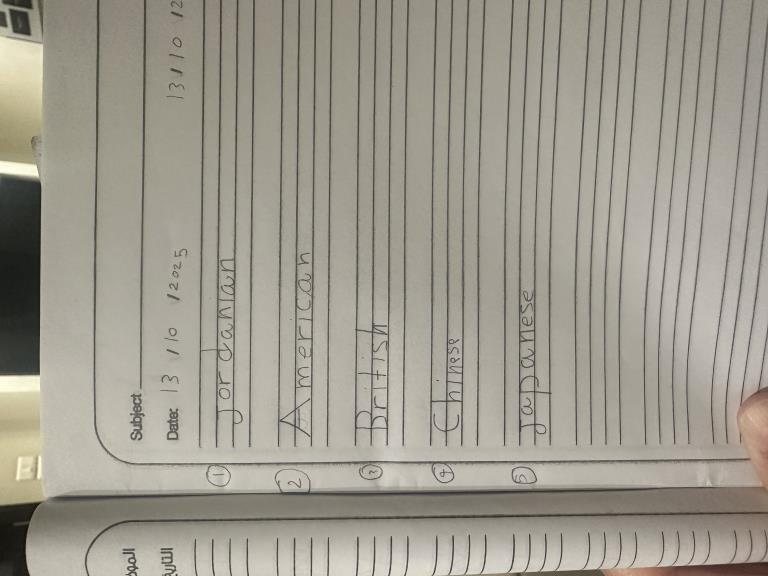 Subject
Date: 13 / 10 / 2025 13 / 10 / 2
① Jordanian
② American
③ British
④ Chinese
⑤ Japanese